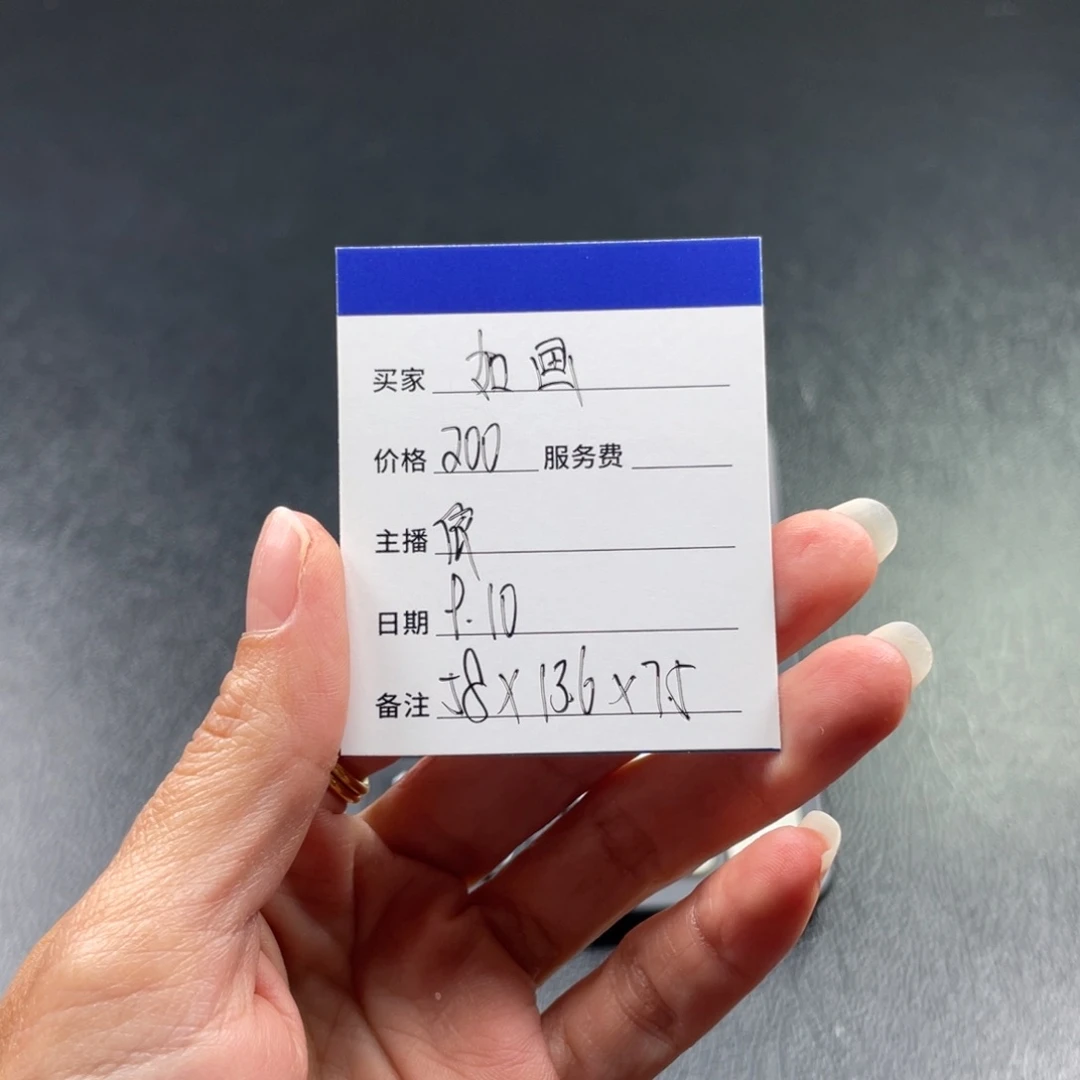 买家 加
价格 200 服务费
主播
日期 9.10
备注 58×13.6×7.5